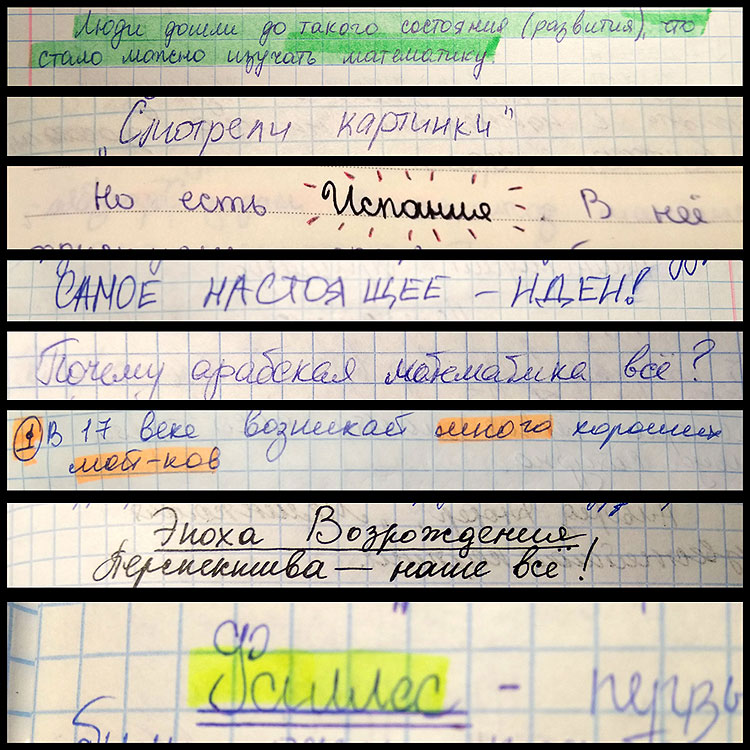 Люди дошли до такого состояния (развития), что
стало можно изучать математику.
"Смотрели картинки"
Но есть Испания. В ней
САМОЕ НАСТОЯЩЕЕ – ИДЕН!
Почему арабская математика всё?
① В 17 веке возникает много хороших
мат-ков
Эпоха Возрождения
Перспектива — наше всё!
Фаллес -